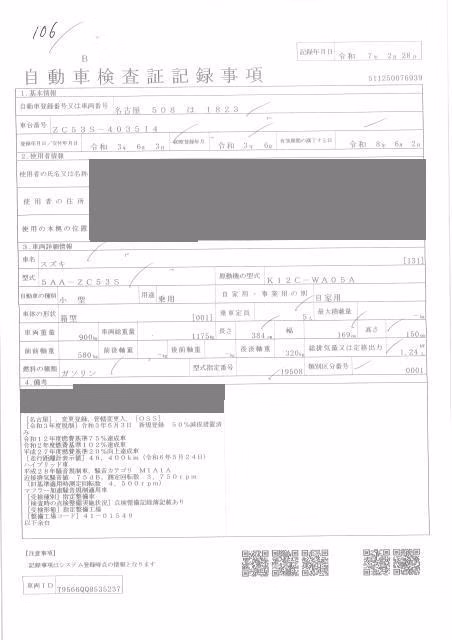 106
B
記録年月日 令和 7年 2月 28日
自動車検査証記録事項
511250076939
1. 基本情報
自動車登録番号又は車両番号 名古屋 508 は 1823
車台番号 ZC53S-403514
登録年月日/交付年月日 令和 3年 6月 3日 初度登録年月 令和 3年 6月 有効期間の満了する日 令和 8年 6月 2日
2. 使用者情報
使用者の氏名又は名称
使用者の住所
使用の本拠の位置
3. 車両詳細情報
車名 スズキ [131]
型式 5AA-ZC53S 原動機の型式 K12C-WA05A
自動車の種別 小型 用途 乗用 自家用・事業用の別 自家用
車体の形状 箱型 [001] 乗車定員 5人 最大積載量 -kg
車両重量 900kg 車両総重量 1175kg 長さ 384cm 幅 169cm 高さ 150cm
前前軸重 580kg 前後軸重 -kg 後前軸重 -kg 後後軸重 320kg 総排気量又は定格出力 1.24
燃料の種類 ガソリン 型式指定番号 19508 類別区分番号 0001
4. 備考
[名古屋], 変更登録, 管轄変更入, [OSS]
[令和3年度税制] 令和3年6月3日 新規登録 50%減税措置済
み
令和12年度燃費基準75%達成車
令和2年度燃費基準102%達成車
平成27年度燃費基準20%向上達成車
[走行距離計表示値] 46,400km (令和6年5月24日)
ハイブリッド車
平成28年騒音規制車, 騒音カテゴリ M1A1A
近接排気騒音値 75dB, 測定回転数 3,750rpm
マフラー加速騒音規制適用車
[受検種別] 指定整備車
[検査時の点検整備実施状況] 点検整備記録簿記載あり
[受検形態] 指定整備工場
[整備工場コード] 41-01549
以下余白
[注意事項]
記録事項はシステム登録時点の情報となります
車両ID T9566QQ8535237